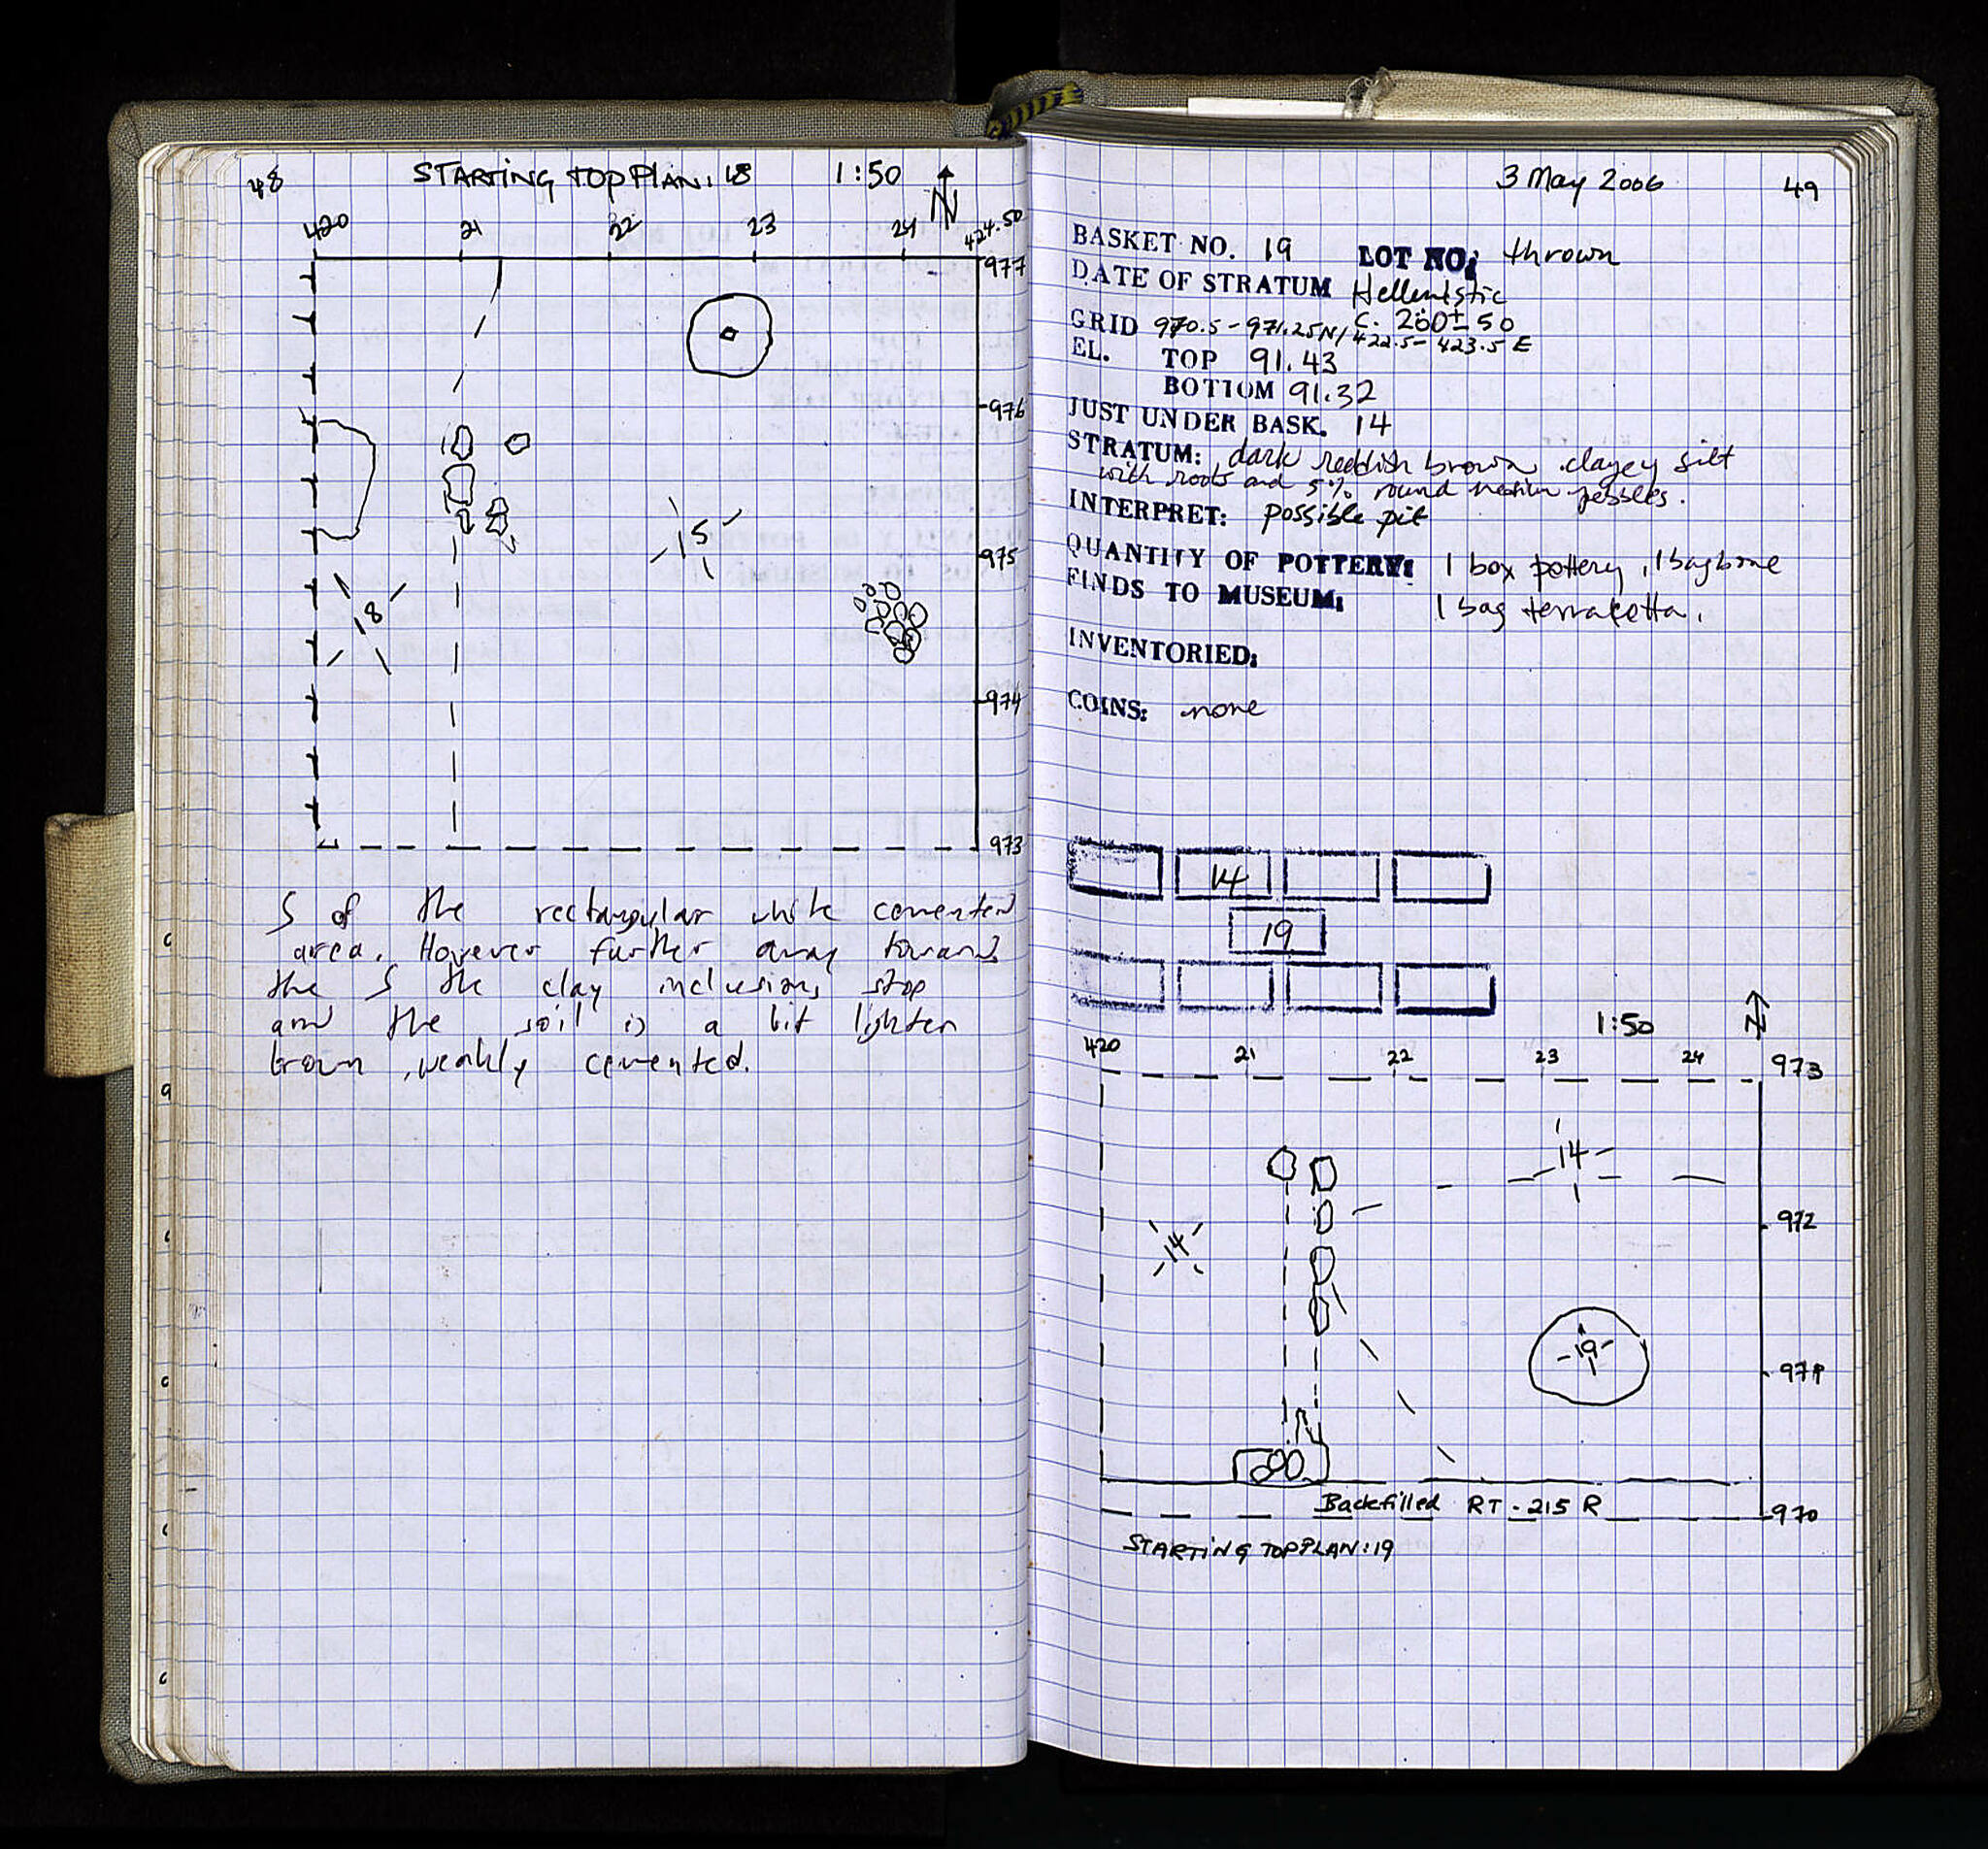 48
STARTING TOP PLAN: 18 1:50 N
420 21 22 23 24 424.50
977
976
975
974
973
15
18
S of the rectangular white cemented
area. However further away towards
the S the clay inclusions stop
and the soil is a bit lighter
brown, weakly cemented.
3 May 2006 49
BASKET NO. 19 LOT NO: thrown
DATE OF STRATUM Hellenistic
c. 200±50
GRID 970.5-971.25N/422.5-423.5 E
EL. TOP 91.43
BOTTOM 91.32
JUST UNDER BASK. 14
STRATUM: dark reddish brown clayey silt
with roots and 5% round medium pebbles.
INTERPRET: possible pit
QUANTITY OF POTTERY: 1 box pottery, 1 bag bone
FINDS TO MUSEUM: 1 bag terracotta.
INVENTORIED:
COINS: none
14
19
1:50 N
420 21 22 23 24 973
14
972
14
19
971
Backfilled RT-215 R
970
STARTING TOP PLAN: 19